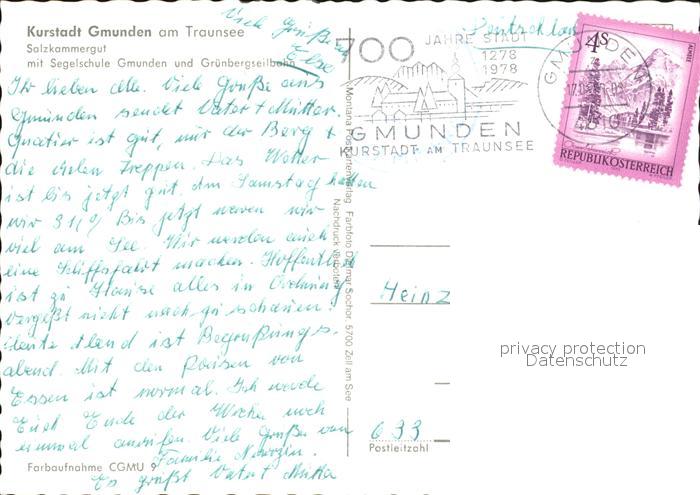 Kurstadt Gmunden am Traunsee
Salzkammergut
mit Segelschule Gmunden und Grünbergseilbahn
Viele Grüße
Else
Ihr lieben alle. Viele Grüße aus
Gmünden sendet Vater + Mutter.
Quatier ist gut, nur der Berg +
die vielen Treppen. Das Wetter
ist bis jetzt gut, am Samstag hatten
wir 31,0 Bis jetzt waren wir
viel am See. Wir werden auch
eine Schiffsfahrt machen. Hoffentlich
ist zu Hause alles in Ordnung
vergeßt nicht nach zu schauen!
Heute Abend ist Begrüßungs-
abend. Mit den Preisen von
Essen ist normal. Ich werde
Euch Ende der Woche noch
einmal anrufen. Viele Grüße von
Familie
Es grüßt Vater + Mutter
Farbaufnahme CGMU 9
Montana Postkartenverlag Farbfoto Dietmar Sochor, 5700 Zell am See
Nachdruck verboten
700 JAHRE STADT
1278
1978
GMUNDEN
KURSTADT AM TRAUNSEE
Deutschland
GMUNDEN
4810
4S
ALMSEE
REPUBLIK ÖSTERREICH
Heinz
privacy protection
Datenschutz
633
Postleitzahl